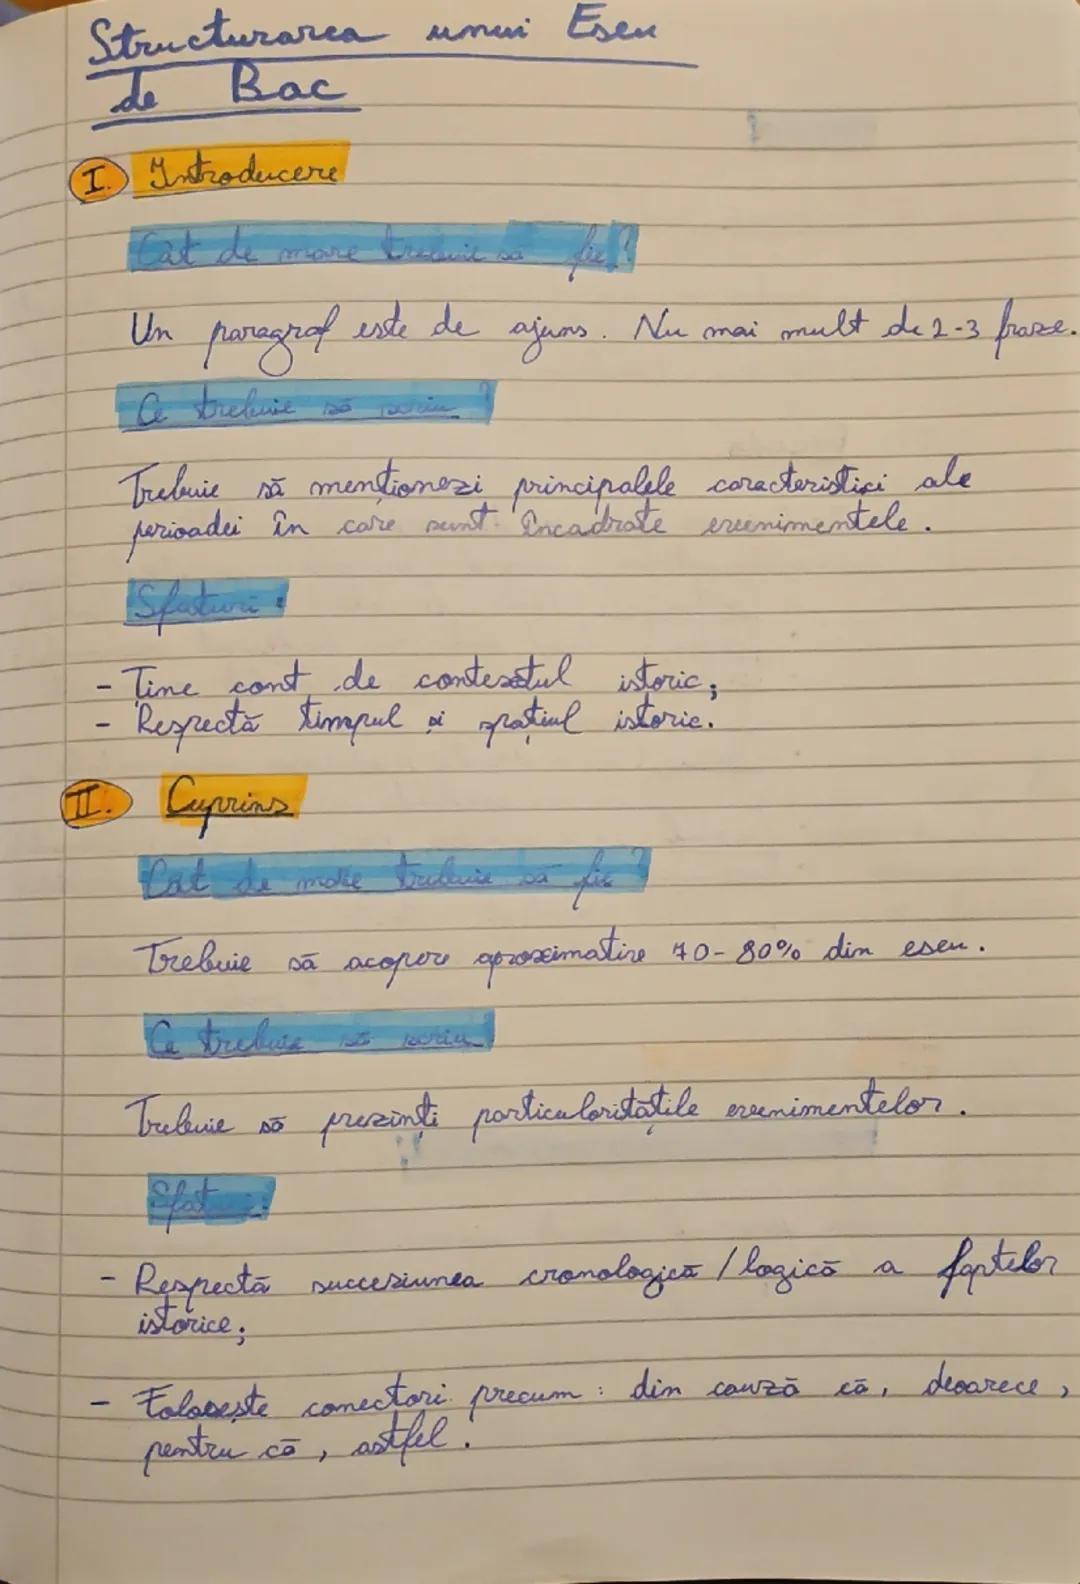 Structurarea unui Eseu
de Bac
I. Introducere
Cât de mare trebuie să fie?
Un paragraf este de ajuns. Nu mai mult de 2-3 fraze.
Ce trebuie să scriu?
Trebuie să menționezi principalele caracteristici ale
perioadei în care sunt încadrate evenimentele.
Sfaturi:
- Ține cont de contextul istoric;
- Respectă timpul și spațiul istoric.
II. Cuprins
Cât de mare trebuie să fie?
Trebuie să acopere aproximativ 70-80% din eseu.
Ce trebuie să scriu
Trebuie să prezinți particularitățile evenimentelor.
Sfaturi:
- Respectă succesiunea cronologică / logică a faptelor
istorice;
- Folosește conectori precum: din cauză că, deoarece,
pentru că, astfel.